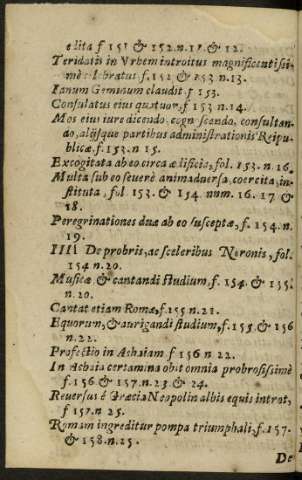 elita f 151 & 152. n. 11. & 12.
Teridatis in Vrbem introitus magnificentissi-
mè celebratus f. 152 & 153 n. 13.
Ianum Geminum claudit. f 153.
Consulatus eius quatuor, f 153 n. 14.
Mos eius iure dicendo, cognoscendo, consultan-
do, alijsque partibus administrationis Reipu-
blicæ, f. 153. n 15.
Excogitata ab eo circa ædificia, fol. 153. n. 16.
Multa sub eo seuerè animaduersa, coercita, in-
stituta, fol. 153. & 154 num. 16. 17 &
18.
Peregrinationes duæ ab eo susceptæ, f. 154. n.
19.
IIII De probris, ac sceleribus Neronis, fol.
154 n. 20.
Musicæ & cantandi studium, f. 154. & 155.
n. 20.
Cantat etiam Romæ, f. 155 n. 21.
Equorum, & aurigandi studium, f. 155. & 156
n. 22.
Profectio in Achaiam f 156 n. 22.
In Achaia certamina obit omnia probrosissimè
f. 156. & 157. n. 23 & 24.
Reuersus é Græcia Neopolin albis equis introit,
f 157. n 25.
Romam ingreditur pompa triumphali, f. 157.
& 158. n. 25.
De